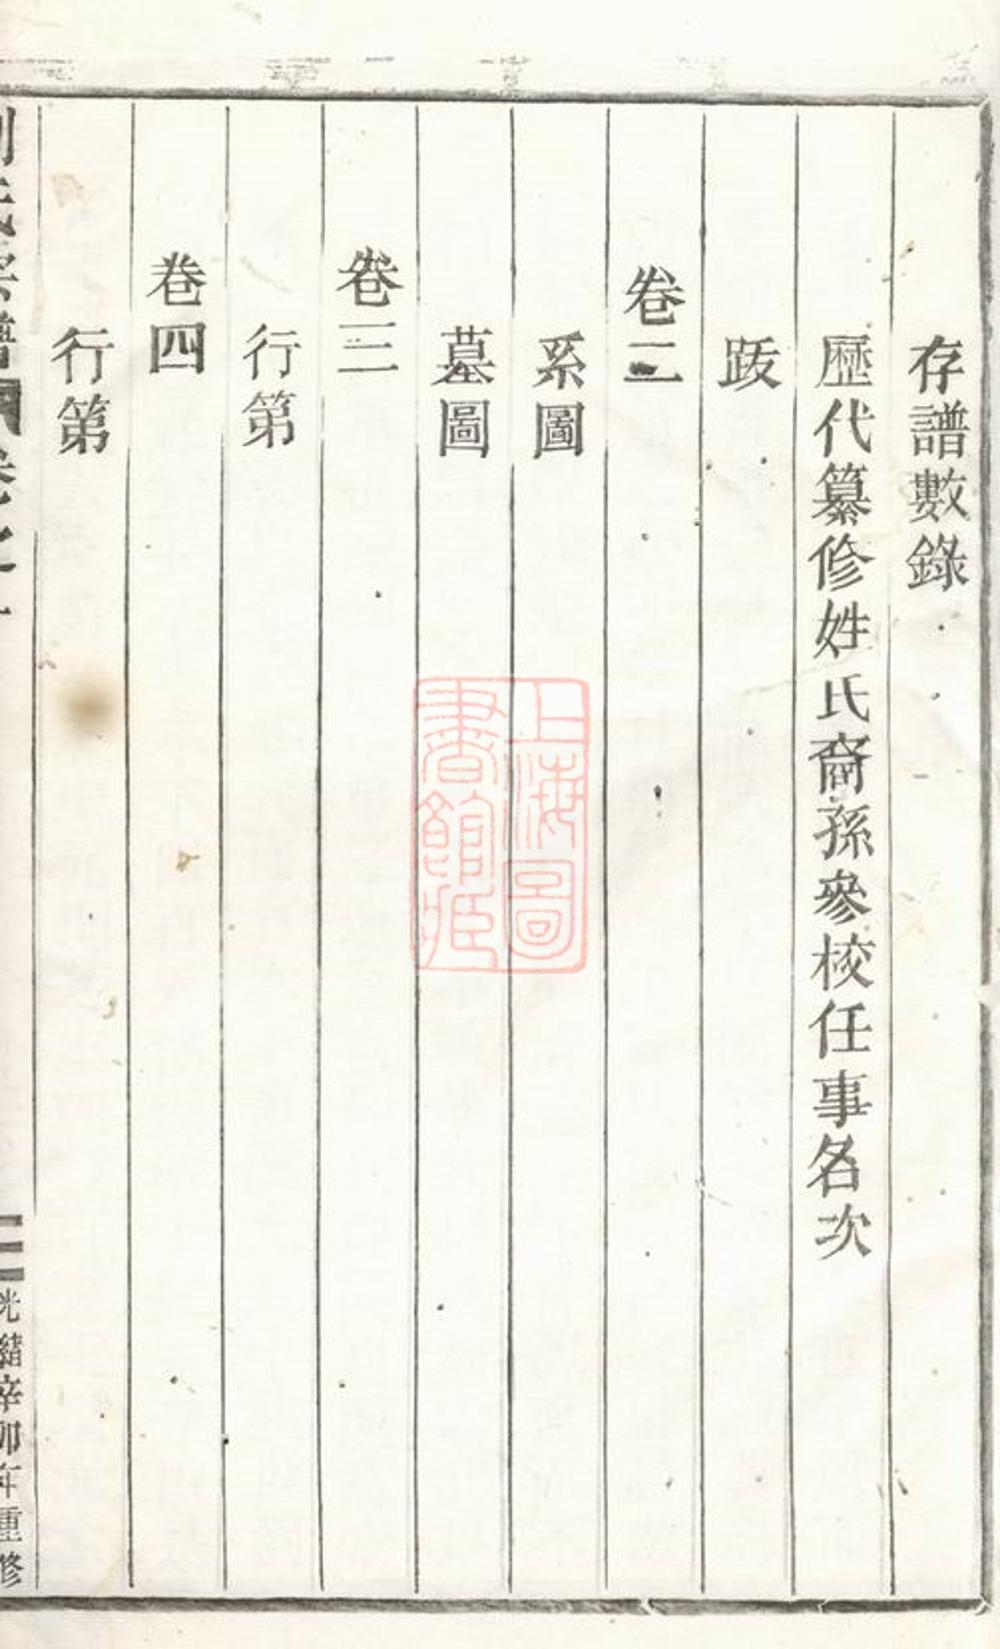 存譜數錄
歷代纂修姓氏裔孫參校任事名次
跋
卷二
系圖
墓圖
卷三
行第
卷四
行第
光緒辛卯年重修
上海圖書館藏